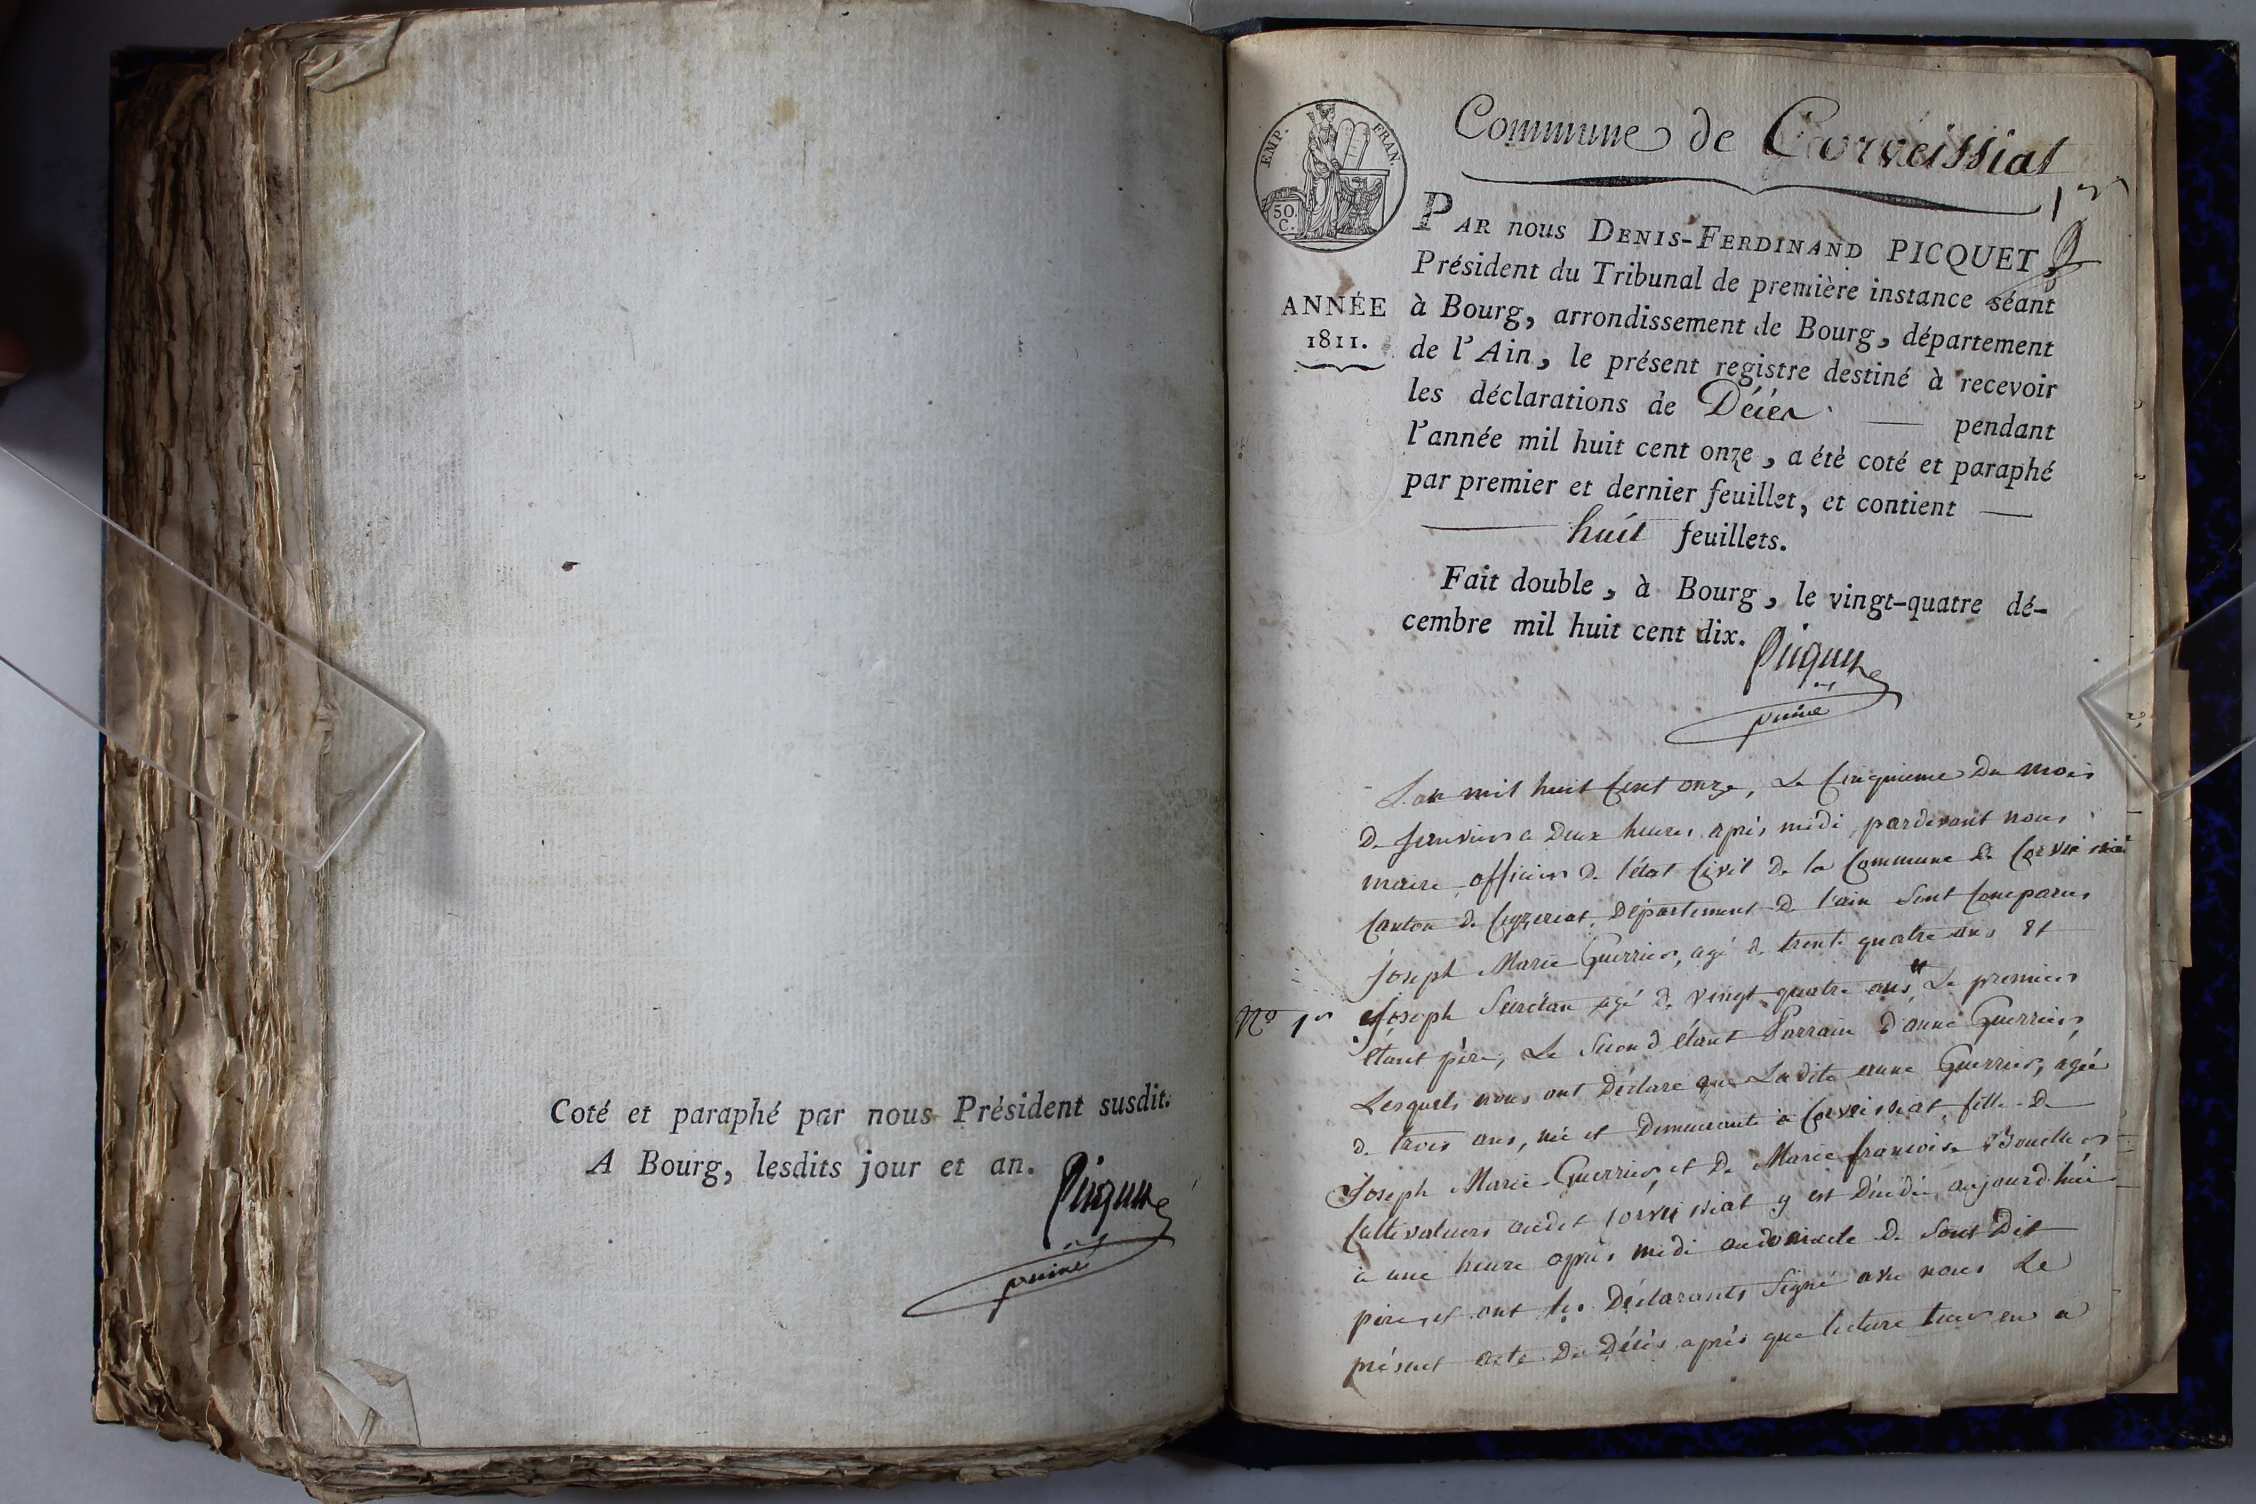 Coté et paraphé par nous Président susdit.
A Bourg, lesdits jour et an.
Picquet
Commune de Corveissiat
1er
EMP. FRAN.
50. C.
ANNÉE
1811.
PAR nous DENIS-FERDINAND PICQUET,
Président du Tribunal de première instance séant
à Bourg, arrondissement de Bourg, département
de l'Ain, le présent registre destiné à recevoir
les déclarations de Décès pendant
l'année mil huit cent onze, a été coté et paraphé
par premier et dernier feuillet, et contient
huit feuillets.
Fait double, à Bourg, le vingt-quatre dé-
cembre mil huit cent dix.
Picquet
L'an mil huit Cent onze, Le Cinquieme Du mois
De Janvier a Deux heures après midi, pardevant nous
maire officier De l'état Civil De la Commune De Corveissiat
Canton De Ceyzeriat, Département De l'ain Sont Comparus
Joseph Marie Guerrier, agé De trente quatre ans Et
No 1er
Joseph agé De vingt quatre ans, Le premier
étant père, Le Second étant Parrain d'anne Guerrier,
Lesquels nous ont Déclaré que Ladite anne Guerrier, agée
De trois ans, née et Demeurante à Corveissiat, fille De
Joseph Marie Guerrier, et De Marie francoise
Cultivateurs audit Corveissiat y est Décédée aujourd'hui
à une heure après midi audomicile De Sont Dit
père, et ont les Déclarants Signé avec nous Le
présent acte De Décès après que lecture leur en a